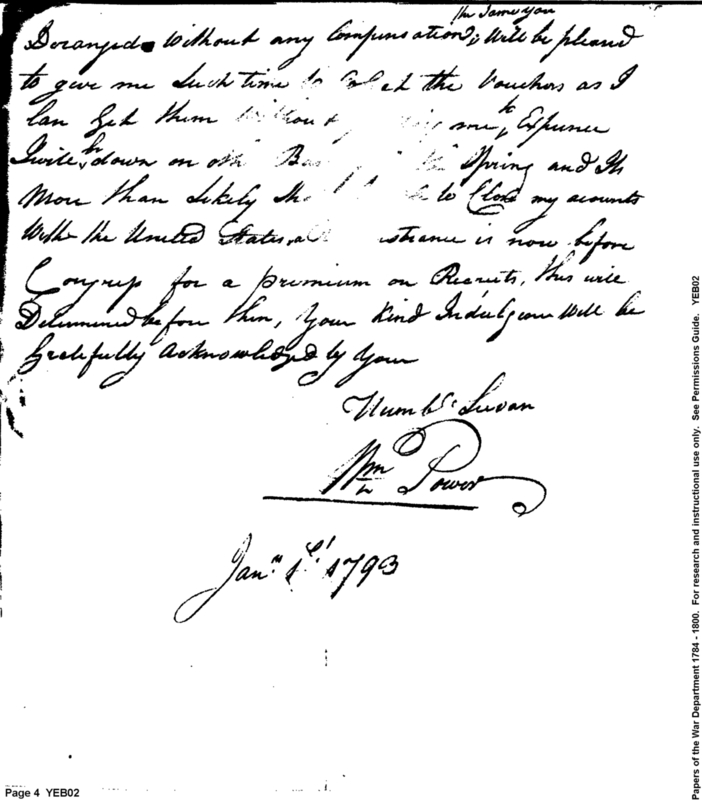 the Same you
Deranged Without any Compensation, Will be pleased
to give me Such time to the Vouchers as I
Can Get them me to Expence
I will be down on the Spring and Its
More than likely to Close my acounts
With the United States, is now before
Congress for a premium on Recruits, this will
Determined before then, Your Kind Indulgence Will be
Gratefully Acknowledged by Your
Humbe Servan
Wm Power
Jany 1st 1793
Page 4 YEB02
Papers of the War Department 1784 - 1800. For research and instructional use only. See Permissions Guide. YEB02